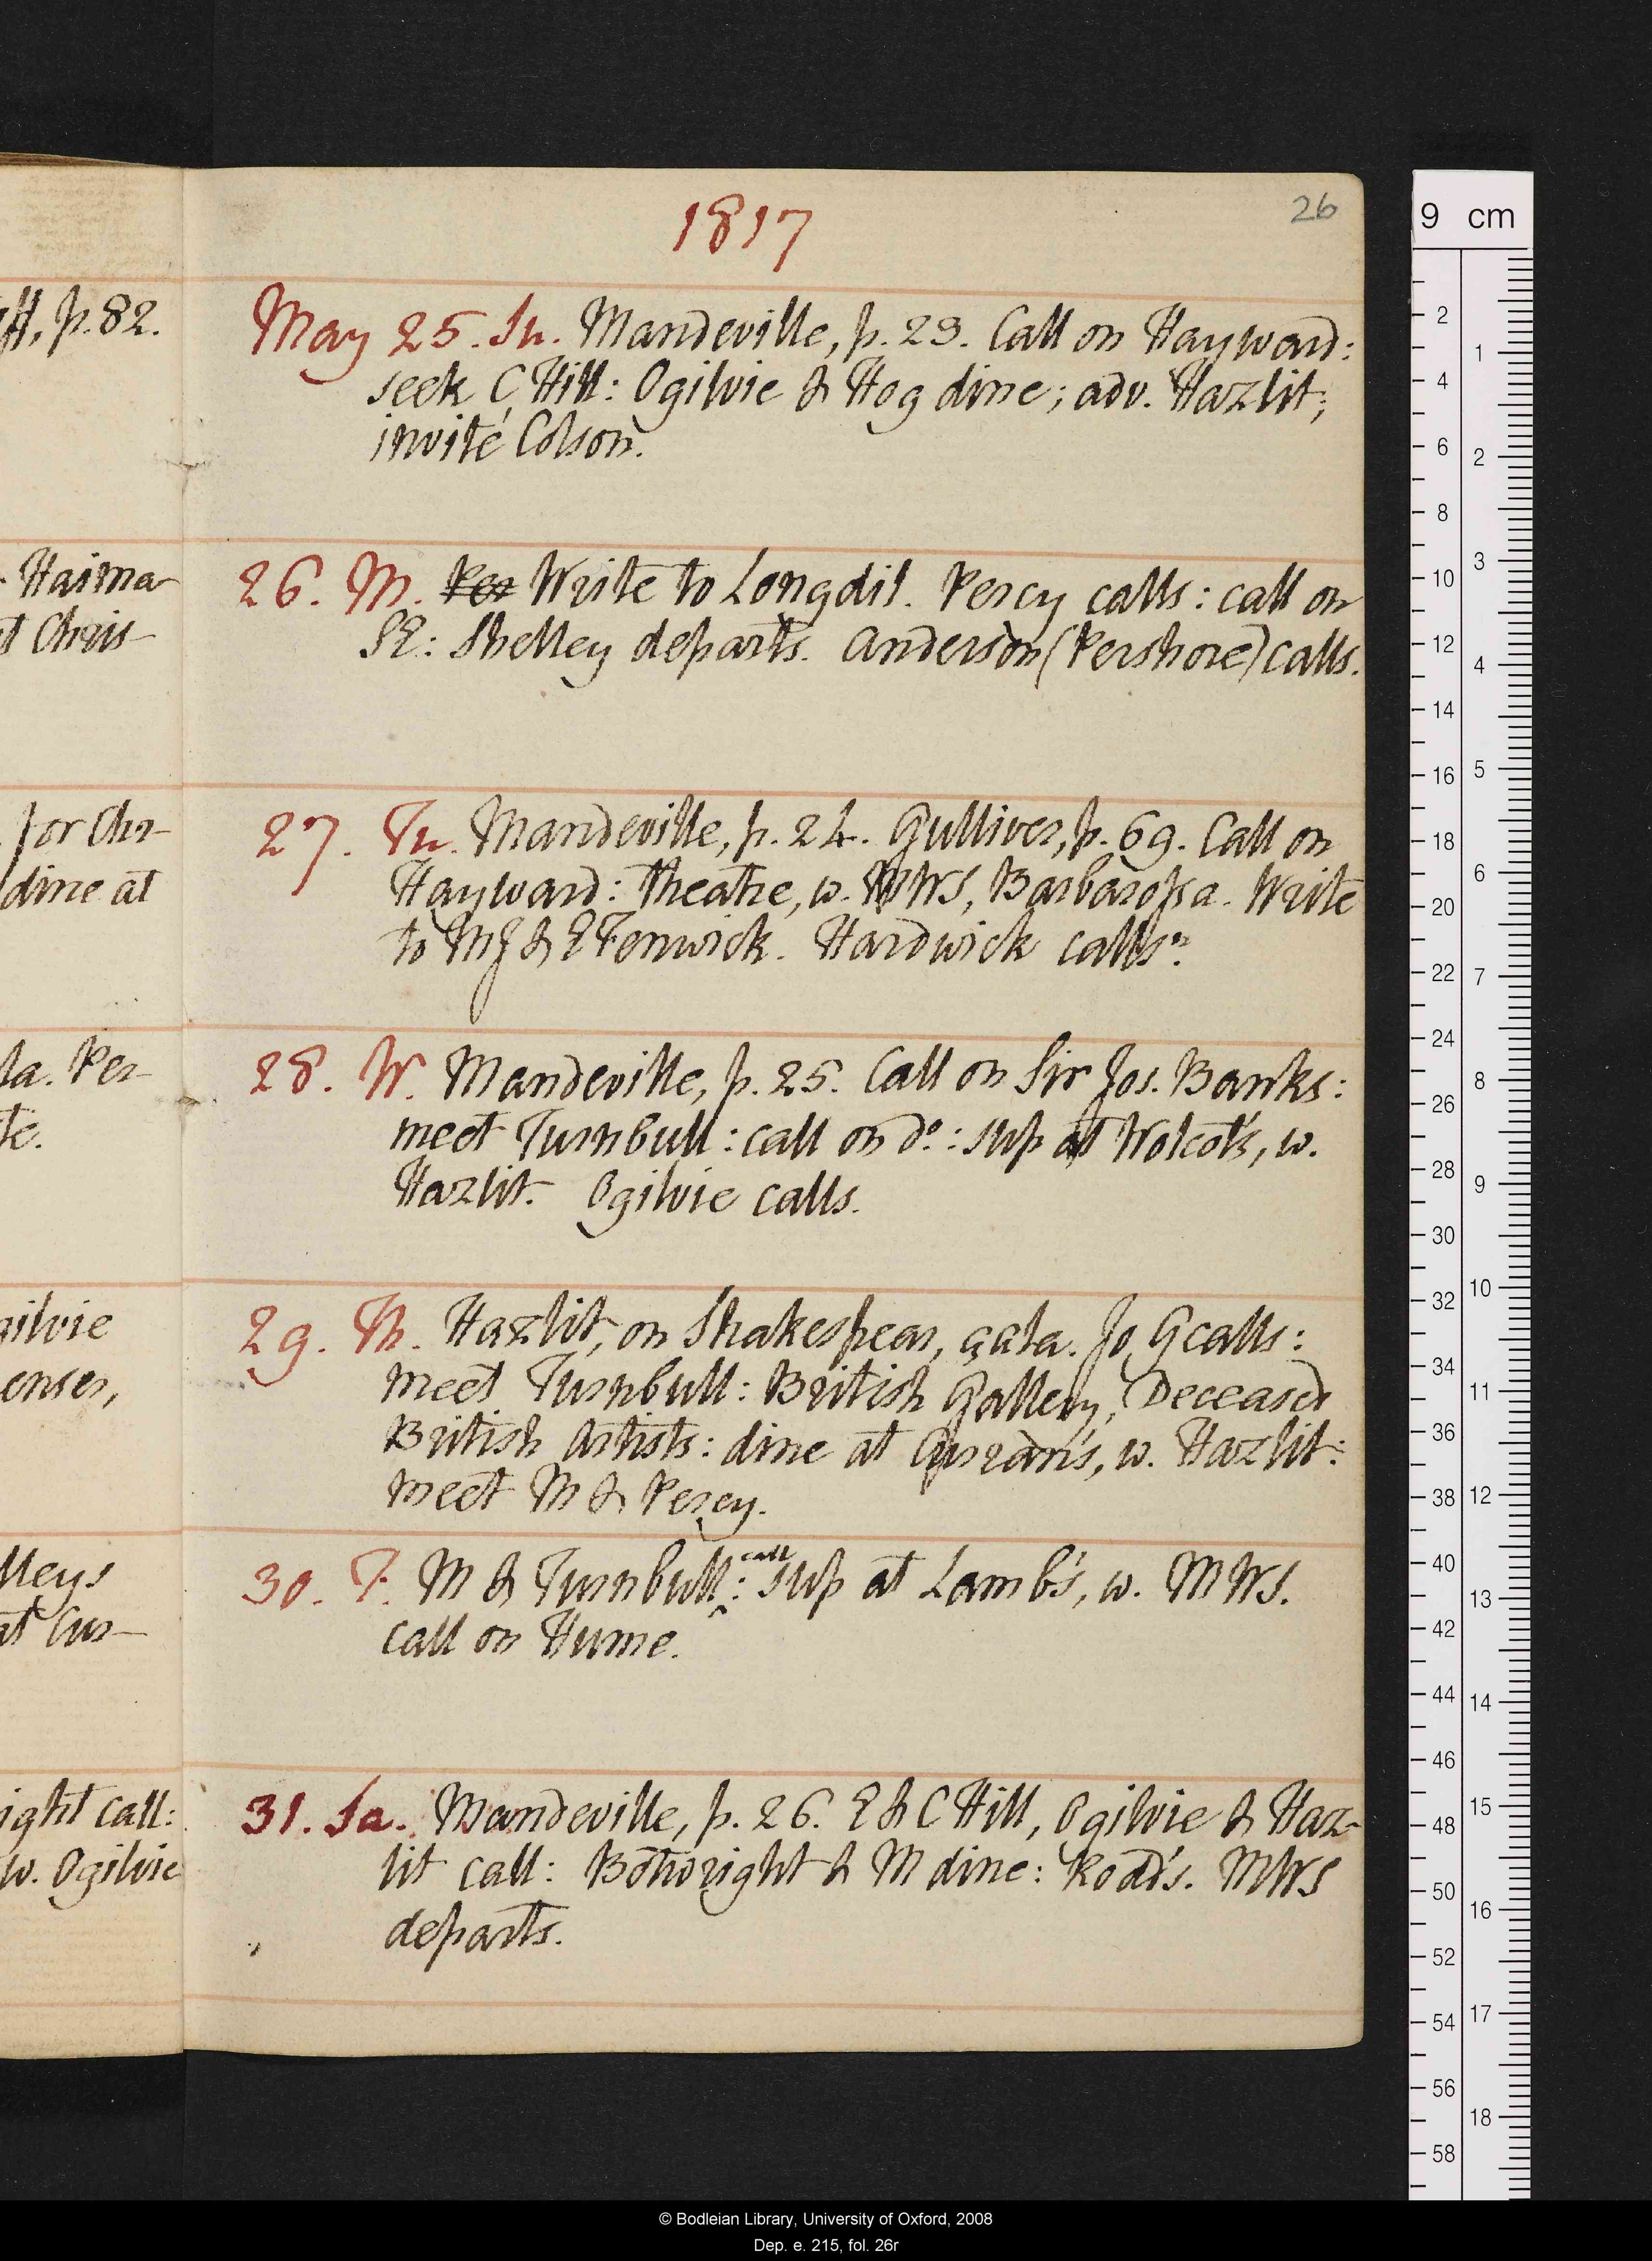 1817
26
ff, p. 82.
May 25. Su. Mandeville, p. 23. Call on Hayward:
seek C Hill: Ogilvie & Hog dine; adv. Hazlit;
invité Colson.
Haima-
at Chris-
26. M. Per Write to Longdil. Percy calls: call on
SE: Shelley departs. Anderson (Pershore) calls.
for Chr-
dine at
27. Tu. Mandeville, p. 24. Gulliver, p. 69. Call on
Hayward: theatre, w. MWS, Barbarossa. Write
to MJ & E Fenwick. Hardwick calls n.
la. Per-
te.
28. W. Mandeville, p. 25. Call on Sir Jos. Banks:
meet Turnbull: call on do.: sup at Wolcot's, w.
Hazlit. Ogilvie calls.
gilvie
enser,
29. Th. Hazlit, on Shakespear, çala. Jo. G calls:
meet Turnbull: British Gallery, Deceased
British Artists: dine at Curran's, w. Hazlit:
meet M & Percy.
lleys
at Cur-
30. F. M & Turnbull call: sup at Lamb's, w. MWS.
call on Hume.
ight call:
w. Ogilvie
31. Sa. Mandeville, p. 26. E & C Hill, Ogilvie & Haz-
lit call: Bothwright & M dine: Rodd's. MWS
departs.
9 cm
2 4 6 8 10 12 14 16 18 20 22 24 26 28 30 32 34 36 38 40 42 44 46 48 50 52 54 56 58
1 2 3 4 5 6 7 8 9 10 11 12 13 14 15 16 17 18
© Bodleian Library, University of Oxford, 2008
Dep. e. 215, fol. 26r